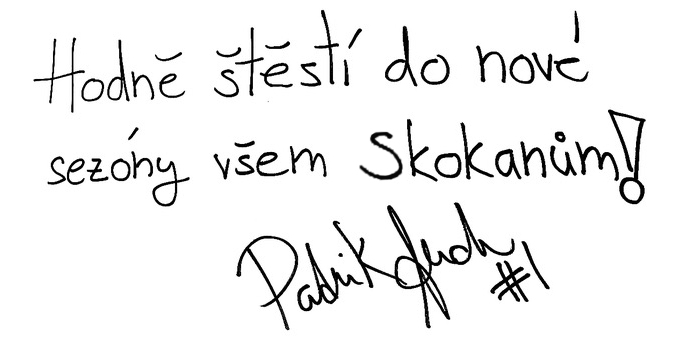 Hodně štěstí do nové
sezóny všem Skokanům!
Patrik
#1